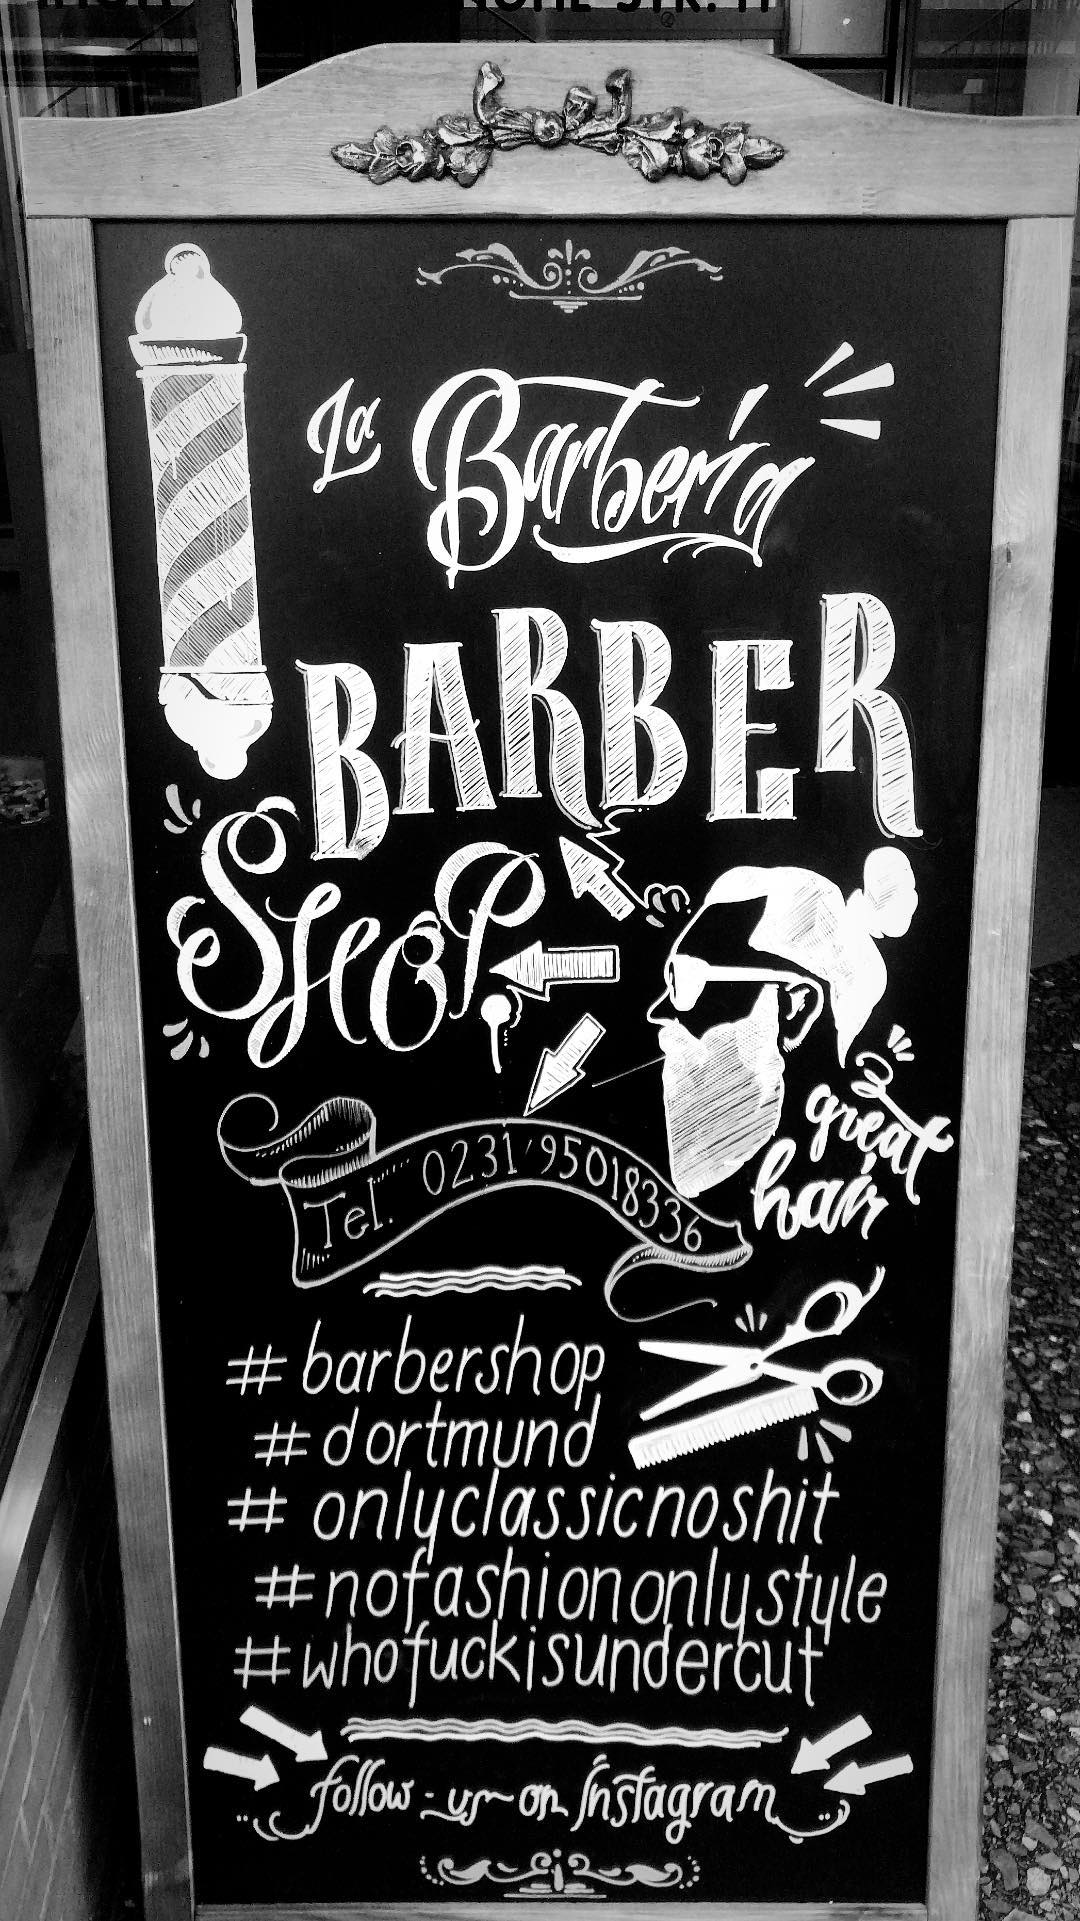 La Barbería
BARBER
SHOP
great
hair
Tel. 0231/95018336
# barbershop
# dortmund
# onlyclassicnoshit
# nofashiononlystyle
# whofuckisundercut
follow-us-on Instagram